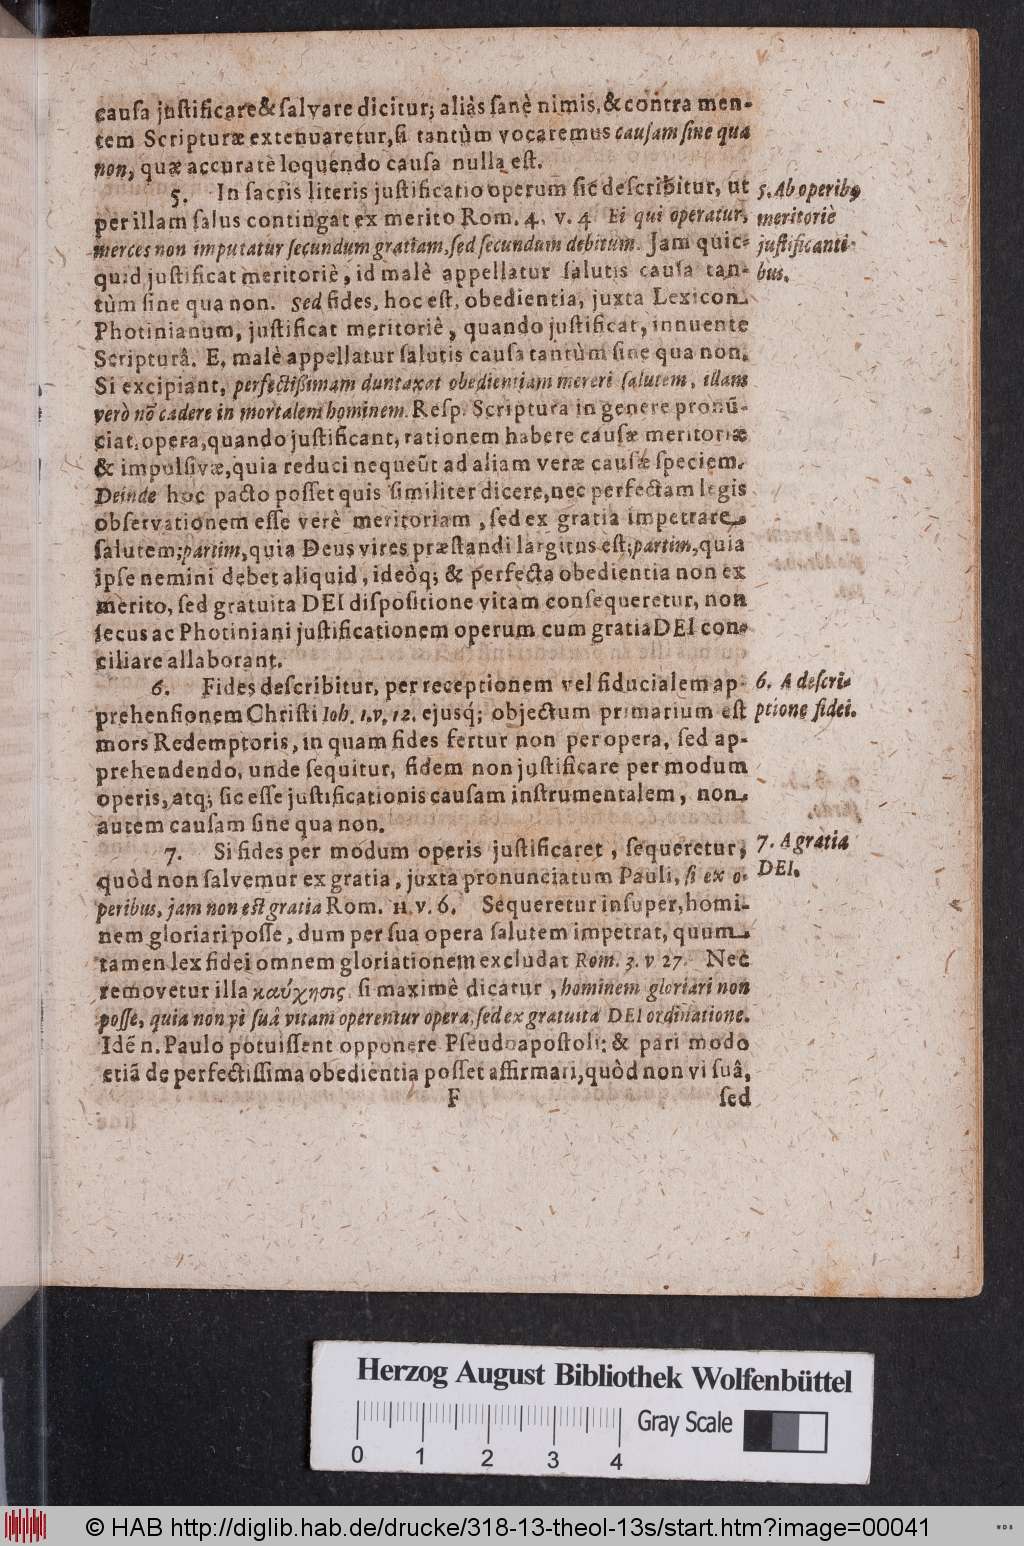 cauſa juſtificare & ſalvare dicitur; aliàs ſanè nimis, & contra men-
tem Scripturæ extenuaretur, ſi tantùm vocaremus cauſam ſine qua
non, quæ accuratè loquendo cauſa nulla eſt.
5. In ſacris literis juſtificatio operum ſic deſcribitur, ut
5. Ab operibꝰ
per illam ſalus contingat ex merito Rom. 4. v. 4 Ei qui operatur,
meritoriè
merces non imputatur ſecundum gratiam, ſed ſecundum debitum. Jam quic-
juſtificanti-
quid juſtificat meritoriè, id malè appellatur ſalutis cauſa tan-
bus.
tùm ſine qua non. Sed fides, hoc eſt, obedientia, juxta Lexicon
Photinianum, juſtificat meritoriè, quando juſtificat, innuente
Scripturâ. E, malè appellatur ſalutis cauſa tantùm ſine qua non.
Si excipiant, perfectißimam duntaxat obedientiam mereri ſalutem, illam
verò nõ cadere in mortalem hominem. Reſp. Scriptura in genere pronũ-
ciat, opera, quando juſtificant, rationem habere cauſæ meritoriæ
& impulſivæ, quia reduci nequeũt ad aliam veræ cauſæ ſpeciem.
Deinde hoc pacto poſſet quis ſimiliter dicere, nec perfectam legis
obſervationem eſſe verè meritoriam, ſed ex gratia impetrare
ſalutem; partim, quia Deus vires præſtandi largitus eſt; partim, quia
ipſe nemini debet aliquid, ideòq; & perfecta obedientia non ex
merito, ſed gratuita DEI diſpoſitione vitam conſequeretur, non
ſecus ac Photiniani juſtificationem operum cum gratia DEI con-
ciliare allaborant.
6. Fides deſcribitur, per receptionem vel fiducialem ap-
6. A deſcri-
prehenſionem Chriſti Ioh. 1. v. 12. ejusq́; objectum primarium eſt
ptione fidei.
mors Redemptoris, in quam fides fertur non per opera, ſed ap-
prehendendo, unde ſequitur, fidem non juſtificare per modum
operis, atq; ſic eſſe juſtificationis cauſam inſtrumentalem, non
autem cauſam ſine qua non.
7. Si fides per modum operis juſtificaret, ſequeretur,
7. A gratia
quòd non ſalvemur ex gratia, juxta pronunciatum Pauli, ſi ex o-
DEI.
peribus, jam non est gratia Rom. 11. v. 6. Sequeretur inſuper, homi-
nem gloriari poſſe, dum per ſua opera ſalutem impetrat, quum
tamen lex fidei omnem gloriationem excludat Rom. 3. v 27. Nec
removetur illa καύχησις, ſi maximè dicatur, hominem gloriari non
poſſe, quia non vi ſuâ vitam operentur opera, ſed ex gratuita DEI ordinatione.
Idẽ n. Paulo potuiſſent opponere Pſeudoapoſtoli; & pari modo
etiã de perfectiſſima obedientia poſſet affirmari, quòd non vi ſuâ,
F ſed
Herzog August Bibliothek Wolfenbüttel
Gray Scale
0 1 2 3 4
© HAB http://diglib.hab.de/drucke/318-13-theol-13s/start.htm?image=00041